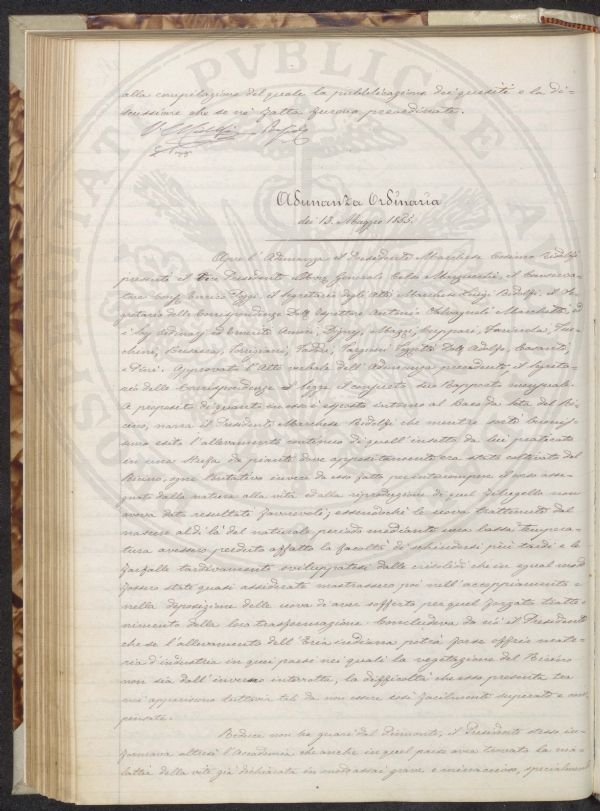 alla compilazione del quale la pubblicazione dei quesiti e la di-
scussione che se n'è fatta furono preordinate.
Adunanza Ordinaria
dei 13. Maggio 1855.
Apre l'Adunanza il Presidente Marchese Cosimo Ridolfi
presenti il Vice Presidente Avv. Generale Celso Marzucchi, il Conserva-
tore Conf. Enrico il Segretario degli Atti Marchese Luigi Ridolfi, il Se-
gretario delle Corrispondenze Dott. Ispettore Antonio Salvagnoli Marchetti ed
i Sig. Ordinarj ed Emeriti
Dott. Adolfo,
Approvato l'Atto verbale dell'Adunanza precedente il Segreta-
rio delle Corrispondenze legge il consueto suo Rapporto mensuale.
A proposito di quanto in esso è esposto intorno al Baco da Seta del Ri-
cino, narra il Presidente Marchese Ridolfi che mentre sortì buonis-
simo esito l'allevamento continuo di quell'insetto da lui praticato
in una stufa da piante dove appositamente era stato coltivato del
Ricino, ogni tentativo invece da esso fatto per interrompere il corso asse-
gnato dalla natura alla vita e dalla riproduzione di quel filugello non
aveva dato resultati favorevoli; essendochè le uova trattenute dal
nascere al di là del naturale periodo mediante una bassa tempera-
tura avessero perduto affatto la facoltà di schiudersi più tardi e le
farfalle tardivamente sviluppatesi dalle crisalidi che in egual modo
fossero state quasi assiderate mostrassero poi nell'accoppiamento e
nella deposizione delle uova di aver sofferto per quel forzato tratte-
nimento della loro trasformazione. Concludeva da ciò il Presidente
che se l'allevamento dell'Eria indiana potrà forse offrir mate-
ria d'industria in quei paesi nei quali la vegetazione del Ricino
non sia dall'inverno interrotta, le difficoltà che esso presenta tra
noi apparivano tuttavia tali da non essere così facilmente superate e com-
pensate.
Reduce non ha guari dal Piemonte, il Presidente stesso in-
formava altresì l'Accademia che anche in quel paese avea trovato la ma-
lattia della vite già dichiarata in modo assai grave e minaccioso, specialmente